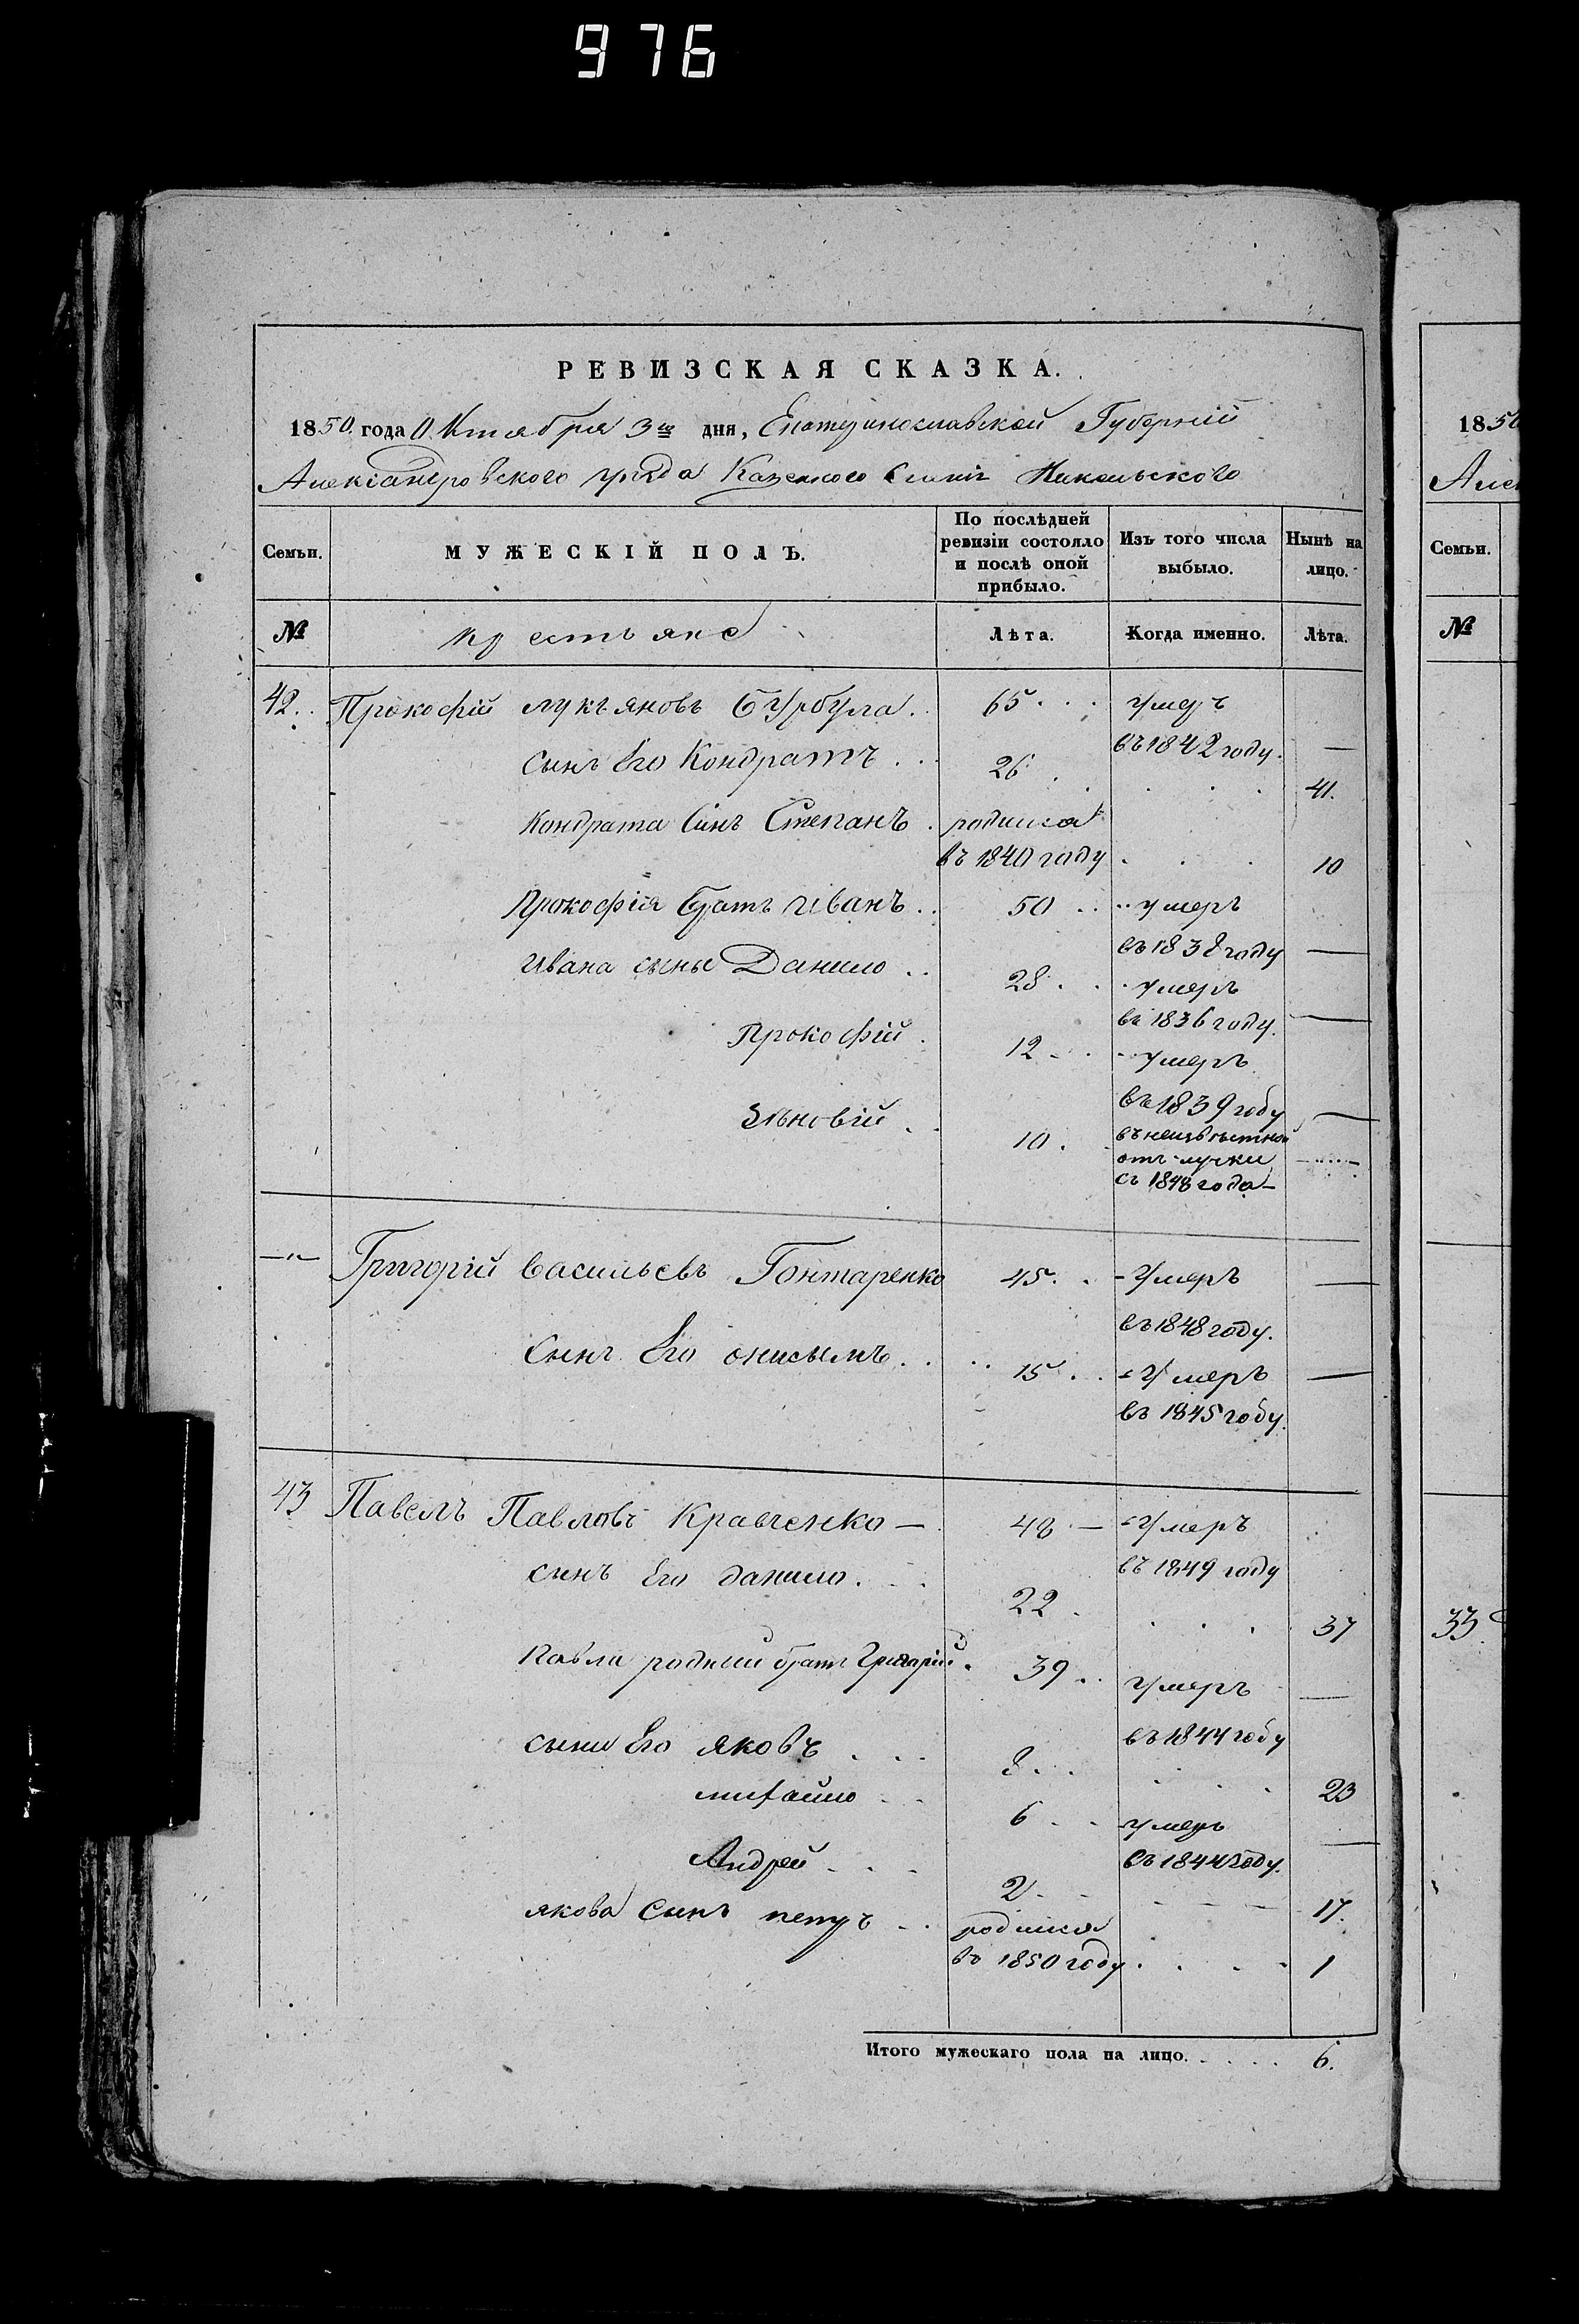 976
РЕВИЗСКАЯ СКАЗКА.
1850 года Октября 3го дня, Екатеринославской Губерніи
Александровского уѣзда Казенного Селенія Никольского
Семьи. МУЖЕСКІЙ ПОЛЪ. По послѣдней ревизіи состояло и послѣ оной прибыло. Изъ того числа выбыло. Нынѣ на лицо.
№ крестьяне Лѣта. Когда именно. Лѣта.
42. Прокофій лукъяновъ Бурбула 65 умеръ
въ 1842 году. —
сынъ Его Кондратъ 26 41.
Кондрата Сынъ Степанъ родился
въ 1840 году 10
Прокофія братъ Иванъ 50 умеръ
въ 1838 году —
Ивана сыны Данило 28 умеръ
въ 1836 году. —
Прокофій 12 умеръ
въ 1839 году —
Зѣновій 10 въ неизвѣстной
отлучки
съ 1848 года —
—"— Григорій васильевъ Гонтаренко 45 умеръ —
въ 1848 году.
Сынъ Его онисымъ 15 умеръ —
въ 1845 году.
43 Павелъ Павловъ Кравченко — 48 — умеръ
въ 1849 году
сынъ Его данило 22 37
Павла родный братъ Григорій 39 умеръ —
въ 1844 году
сыны Его яковъ 8 23
михайло 6 умеръ —
въ 1844 году.
Андрей 2 17.
якова Сынъ петръ родился
въ 1850 году 1
Итого мужескаго пола на лицо. 6.
1850
Алек
Семьи.
№
33